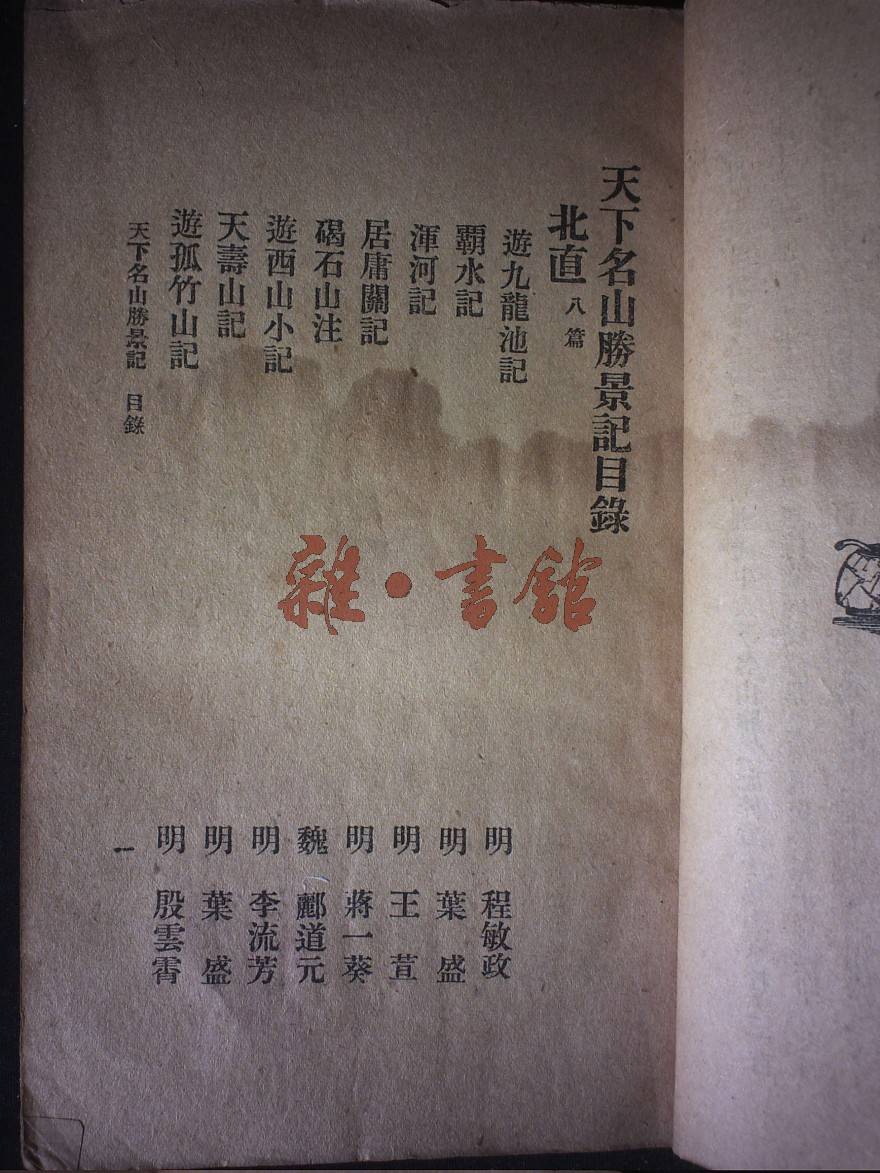 天下名山勝景記目錄
北直 八篇
遊九龍池記 明 程敏政
覇水記 明 葉盛
渾河記 明 王萱
居庸關記 明 蔣一葵
碣石山注 魏 酈道元
遊西山小記 明 李流芳
天壽山記 明 葉盛
遊孤竹山記 明 殷雲霄
天下名山勝景記 目錄 一
雜·書館